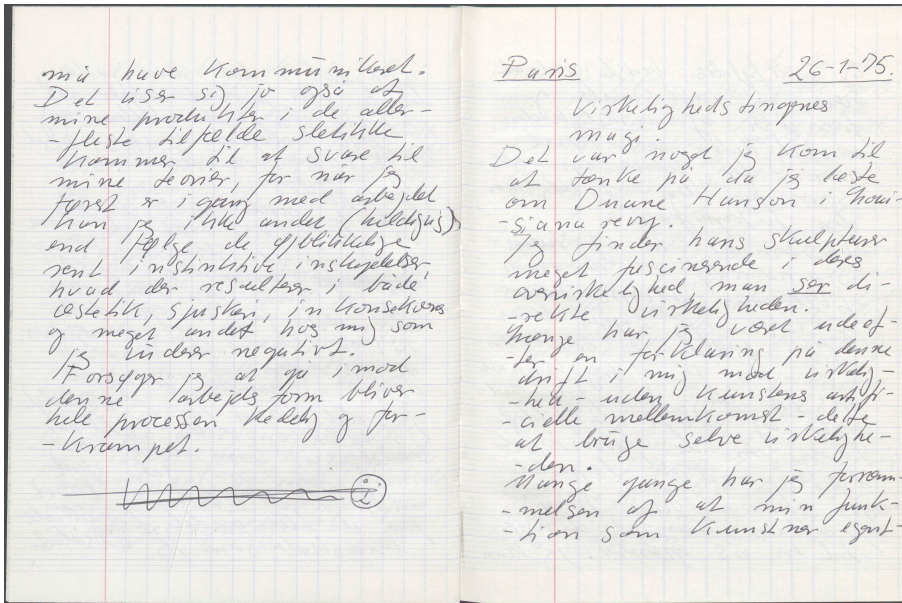 må have kommunikeret.
Det viser sig jo også at
mine produkter i de aller-
-fleste tilfælde slet ikke
kommer til at svare til
mine teorier, for når jeg
først er igang med arbejdet
kan jeg ikke andet (heldigvis)
end følge de øjeblikkelige
rent instinktive inskydelser,
hvad der resulterer i både
æstetik, sjuskeri, inkonsekvens
og meget andet hos mig som
jeg vurderer negativt.
Forsøger jeg at gå imod
denne arbejdsform bliver
hele processen kedelig og for-
-krampet.
Paris 26-1-75.
Virkelighedstingenes
magi.
Det var noget jeg kom til
at tænke på da jeg læste
om Duane Hanson i Loui-
-siana revy.
Jeg finder hans skulpturer
meget fascinerende i deres
overvirkelighed, man ser di-
-rekte virkeligheden.
Længe har jeg været ude ef-
-ter en forklaring på denne
drift i mig mod virkelig-
-hed - uden kunstens artifi-
-cielle mellemkomst - dette
at bruge selve virkelighe-
-den.
Mange gange har jeg fornem-
-melsen af at min funk-
-tion som kunstner egent-